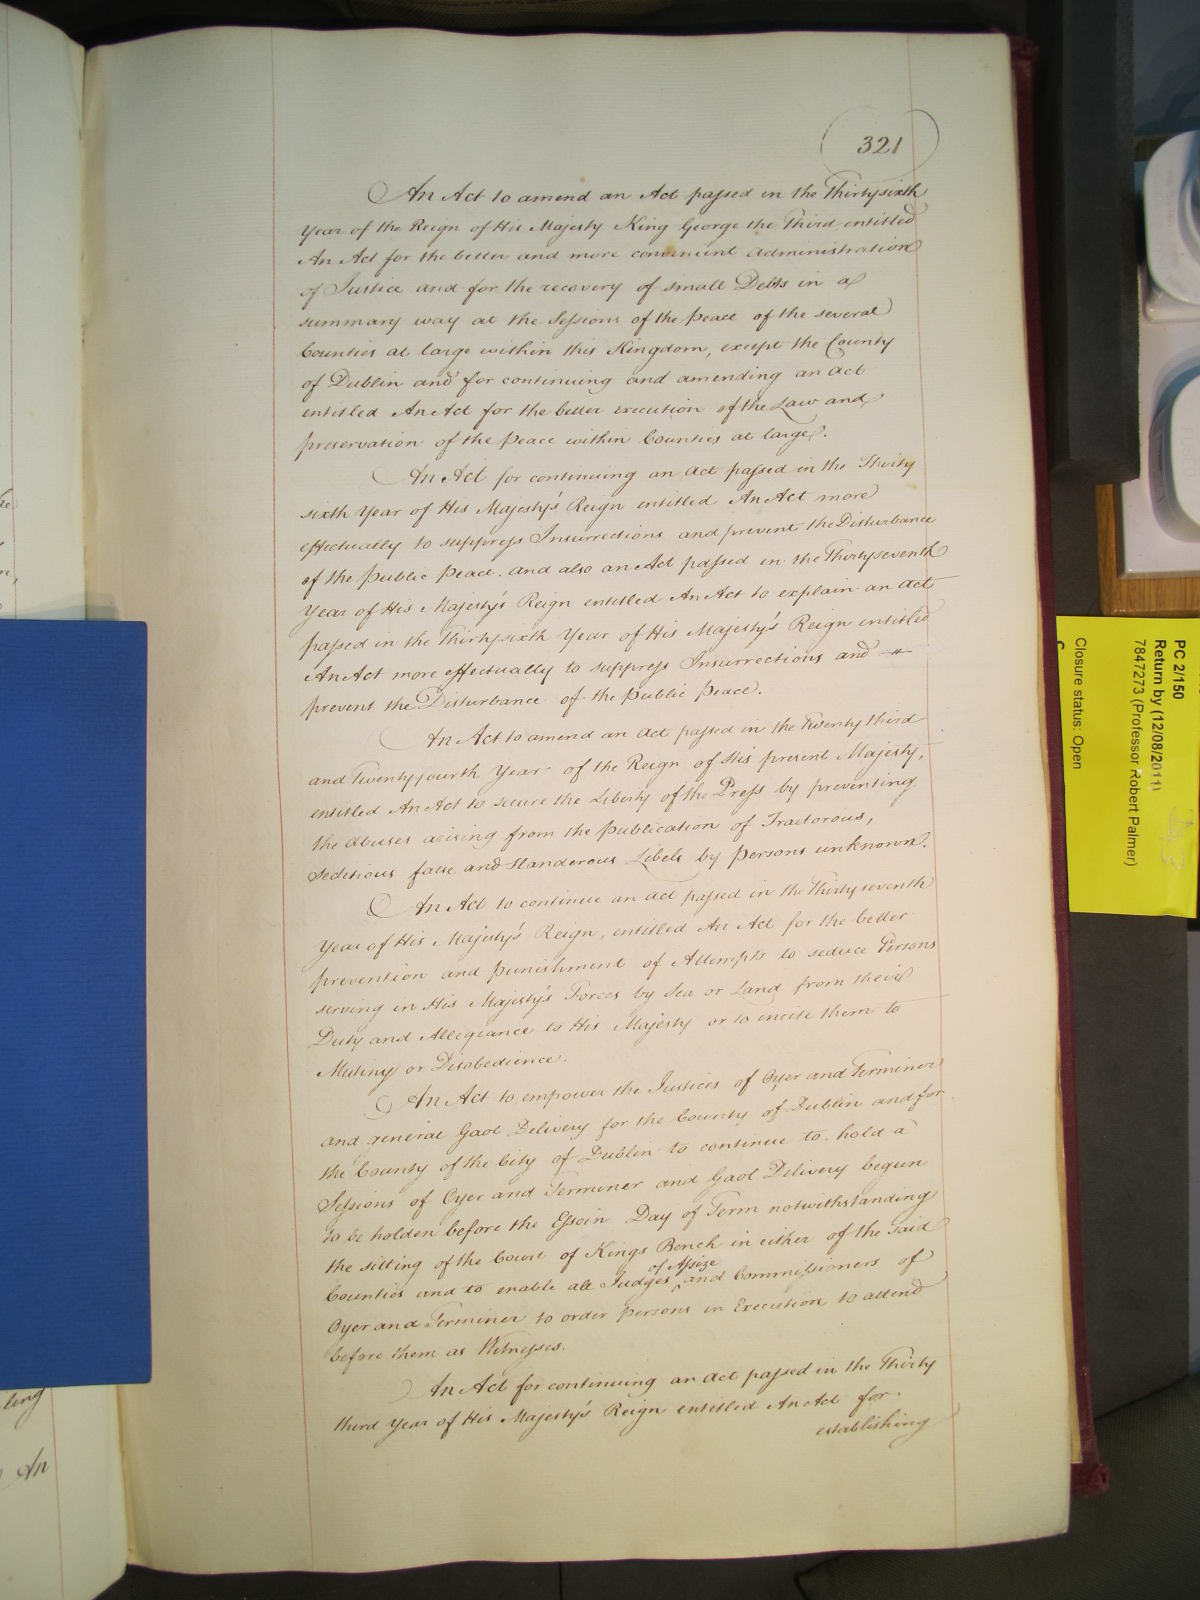 321
An Act to amend an Act passed in the Thirty sixth
Year of the Reign of His Majesty King George the Third entitled
An Act for the better and more convenient Administration
of Justice and for the recovery of small Debts in a
summary way at the Sessions of the Peace of the several
Counties at large within this Kingdom, except the County
of Dublin and for continuing and amending an Act
entitled An Act for the better execution of the Law and
preservation of the Peace within Counties at large.
An Act for continuing an Act passed in the Thirty
sixth Year of His Majesty's Reign entitled An Act more
effectually to suppress Insurrections and prevent the Disturbance
of the Public Peace. and also an Act passed in the Thirty seventh
Year of His Majesty's Reign entitled An Act to explain an Act
passed in the Thirty sixth Year of His Majesty's Reign entitled
An Act more effectually to suppress Insurrections and
prevent the Disturbance of the Public Peace.
An Act to amend an Act passed in the Twenty third
and Twenty fourth Year of the Reign of His present Majesty,
entitled An Act to secure the Liberty of the Press by preventing
the Abuses arising from the Publication of Traitorous,
Seditious false and Slanderous Libels by Persons unknown.
An Act to continue an Act passed in the Thirty seventh
Year of His Majesty's Reign, entitled An Act for the better
prevention and punishment of Attempts to seduce Persons
serving in His Majesty's Forces by Sea or Land from their
Duty and Allegiance to His Majesty or to incite them to
Mutiny or Disobedience.
An Act to empower the Justices of Oyer and Terminer
and general Gaol Delivery for the County of Dublin and for
the County of the City of Dublin to continue to hold a
Sessions of Oyer and Terminer and Gaol Delivery begun
to be holden before the Essoin Day of Term notwithstanding
the sitting of the Court of Kings Bench in either of the said
Counties and to enable all Judges of Assize and Commissioners of
Oyer and Terminer to order Persons in Execution to attend
before them as Witnesses.
An Act for continuing an Act passed in the Thirty
third Year of His Majesty's Reign entitled An Act for
establishing
ling
An
PC 2/150
Return by (12/08/2011)
7847273 (Professor Robert Palmer)
Closure status: Open